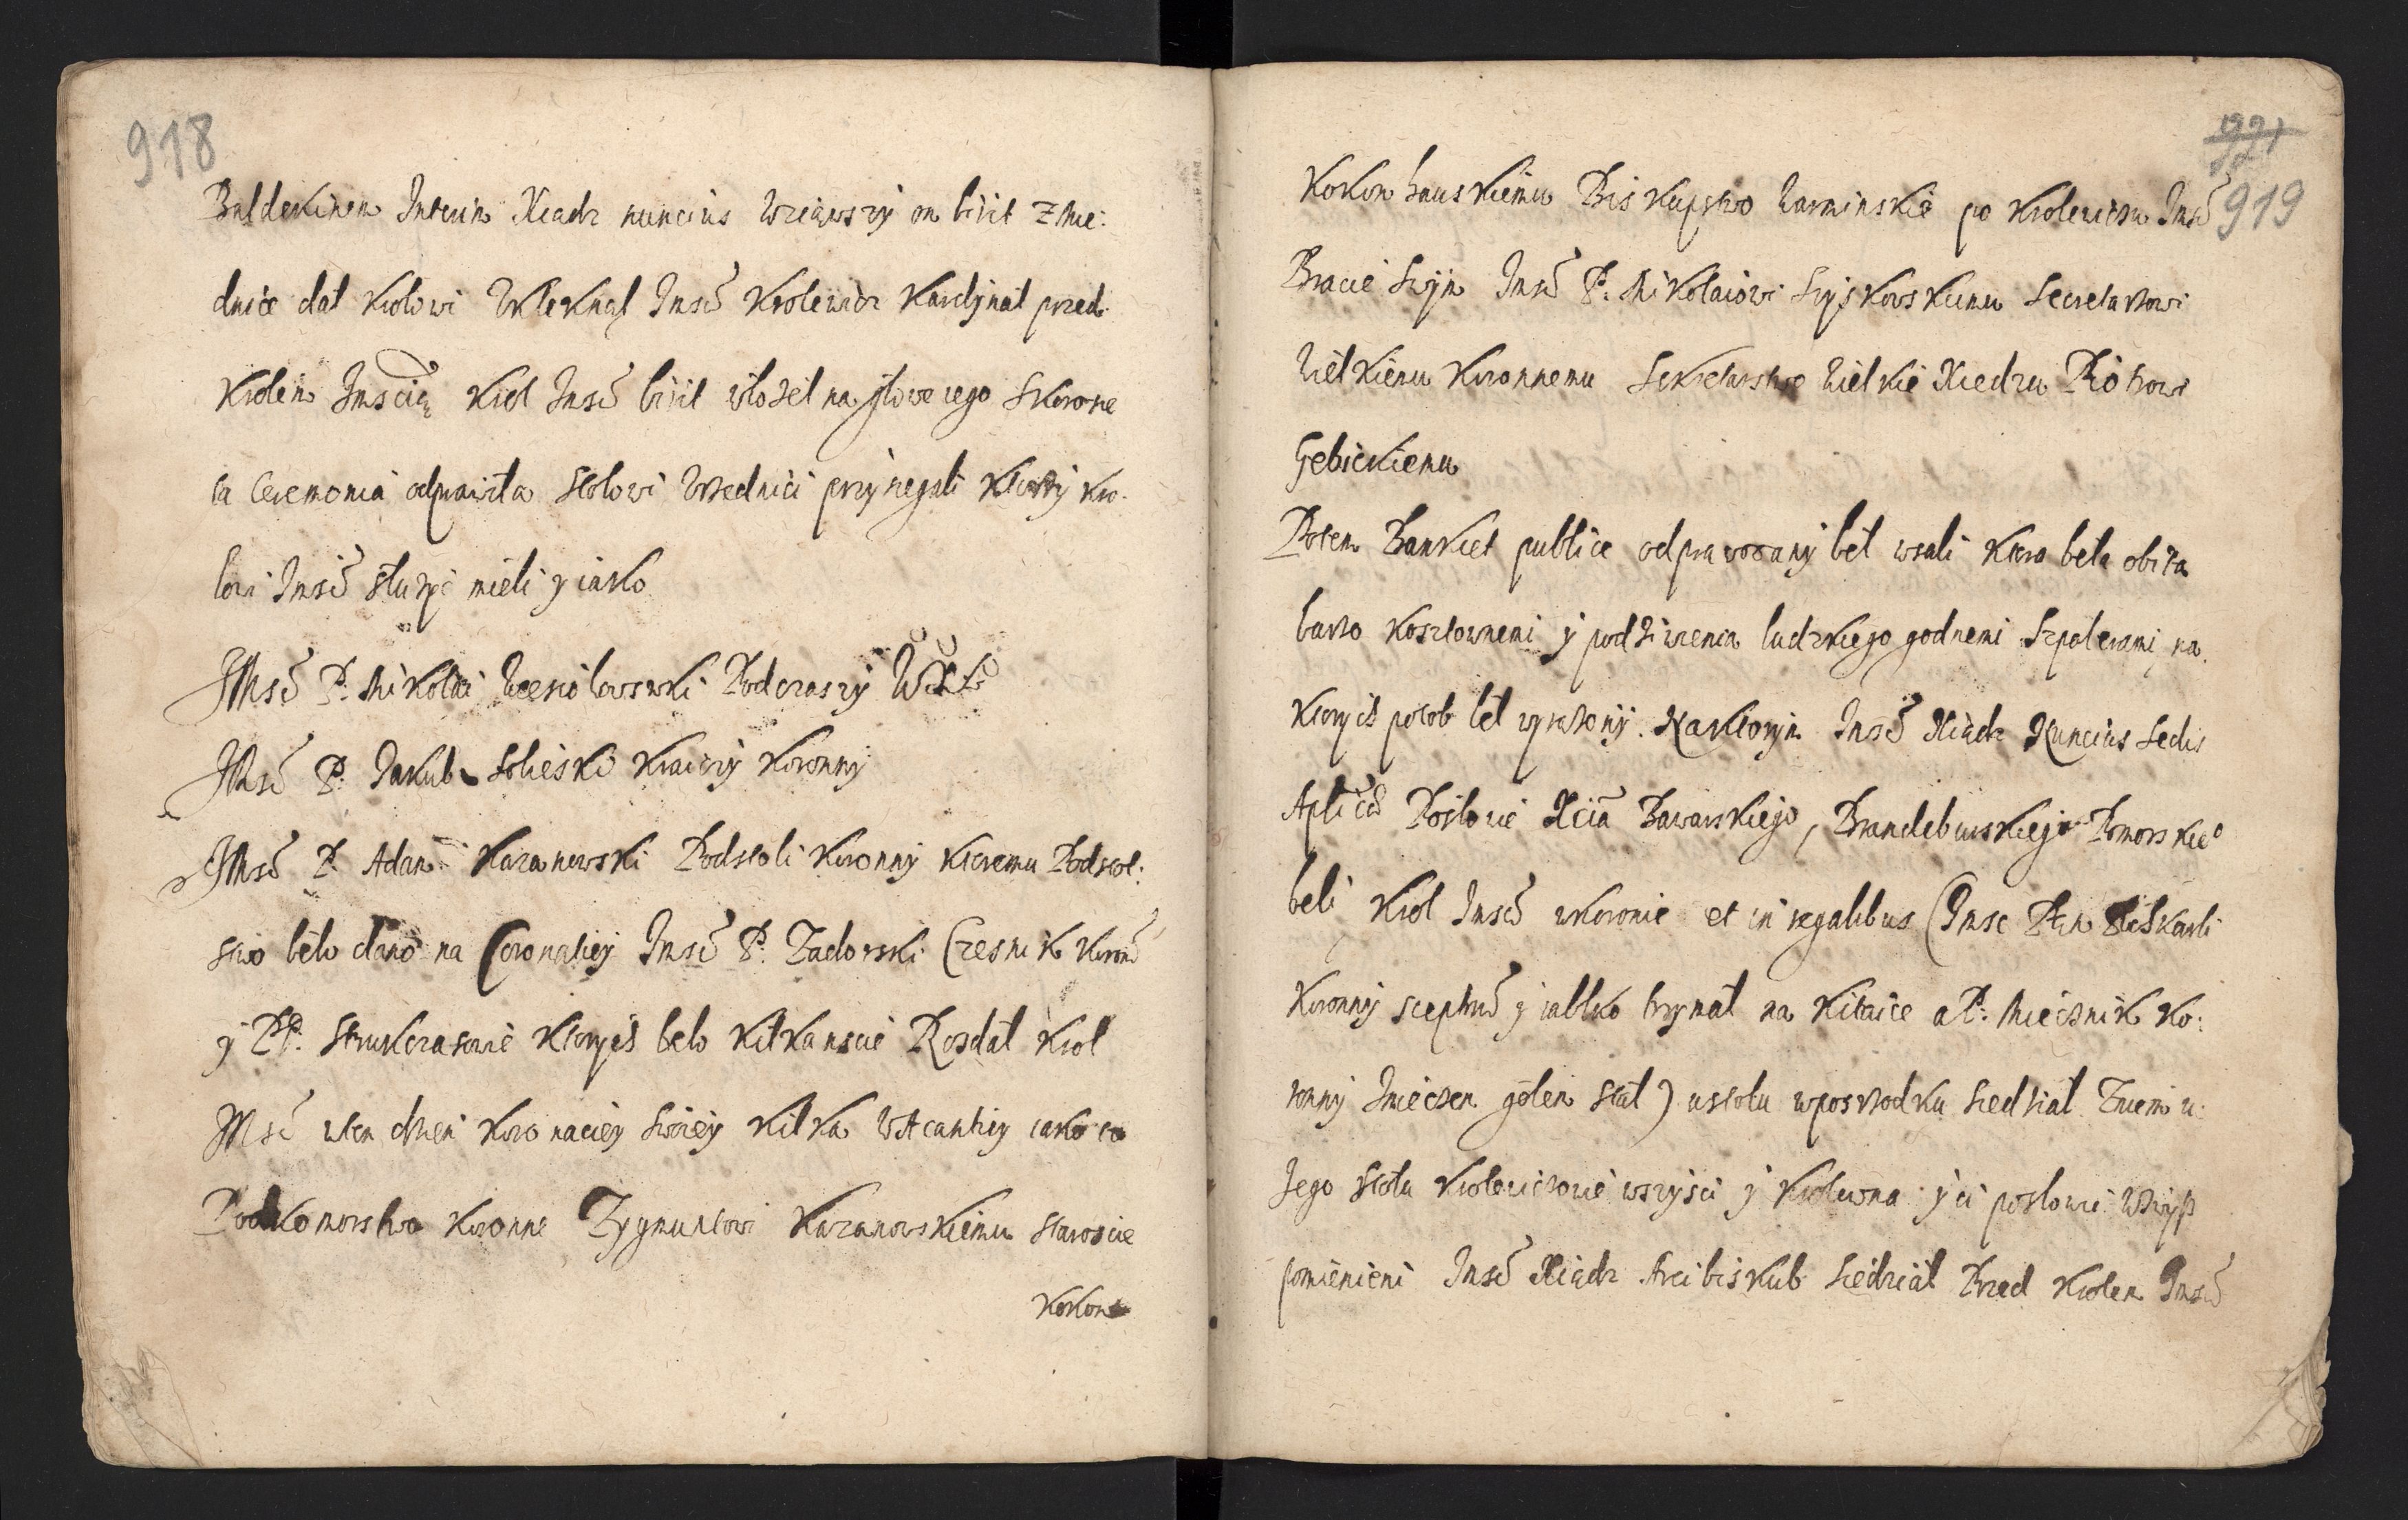 918
Baldekinem Interim Xiadz nuncius wziąwszy on biret z Mie:
dnice dał krolowi Ukleknął Jmsć Krolewicz Kardynał przed
Krolem Jmscią Krol Jmsć biret włożeł na głowe iego Skoro ne
ta Ceremonia odprawiła stołowi Urzednici przysięgali Ktorzy kro:
lowi Jmsci służyc mieli y iako
JMsć P. Mikołai Wesiołowski Podczaszy WXLo
JMsć P. Jakub Sobieski Kraiczy Koronny
JMsć P. Adam Kazanowski Podstoli Koronny Ktoremu Podstol:
stwo beło dano na Coronatiey Jmsć P. Zadorski Czesnik Koron
y PP. Strukczaszowie Ktorych beło Kilkanscie Rozdał Krol
JMsć wten dzien Koronaciey Swoiey Kilka WAcantiy iako to
Podkomorstwo Koronne Zygmuntowi Kazanowskiemu Staroscie
Kokon
921
919
Kokonhauskiemu Biskupstwo Warminskie po Krolewiczu Jmsć
Bracie Swym Jmsć P. Mikołaiowi Szyskowskiemu Secretarzowi
Wielkiemu Koronnemu Sekretarstwo Wielkie Xiedzu Piotrowi
Gebickiemu
Potem Bankiet publice odprawowany beł wsali Ktora beła obita
barzo Kosztownemi y podziwienia ludzkiego godnemi Szpalerami na
Ktorych potob beł wyrażony. Naktorym Jmsć Xiadz Nuncius Sedis
Aplicae Posłowie Xcia Bawarskiego, Brandeburskiego Pomorskieo
beli Krol Jmsć wkoronie et in regalibus (Jmsc Pan Podskarbi
Koronny sceptrum y iabłko trzymał na Kitaice a P. Miecznik Ko:
ronny Zmieczem gołem stał) ustołu wposrzodku Siedział Zniem u:
Jego stołu Krolewiczowie wszysci y Krolewna y ci posłowie Wzwysz
pomienieni Jmsć Xiądz Arcibiskub Siedział Przed Krolem Jmsć